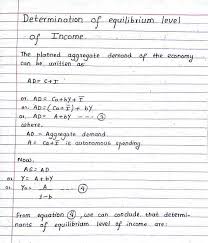 Determination of equilibrium level
of Income.
The planned aggregate demand of the economy
can be written as
AD = C+I
or, AD = Ca+bY+Ī
or, AD = (Ca+Ī) + bY
or, AD = A+bY --- ③
where,
AD - Aggregate demand
A = Ca+Ī is autonomous spending
Now,
AS = AD
or, Y = A+bY
or, Y = A/1-b --- ④
From equation ④, we can conclude that determi-
nants of equilibrium level of income are: